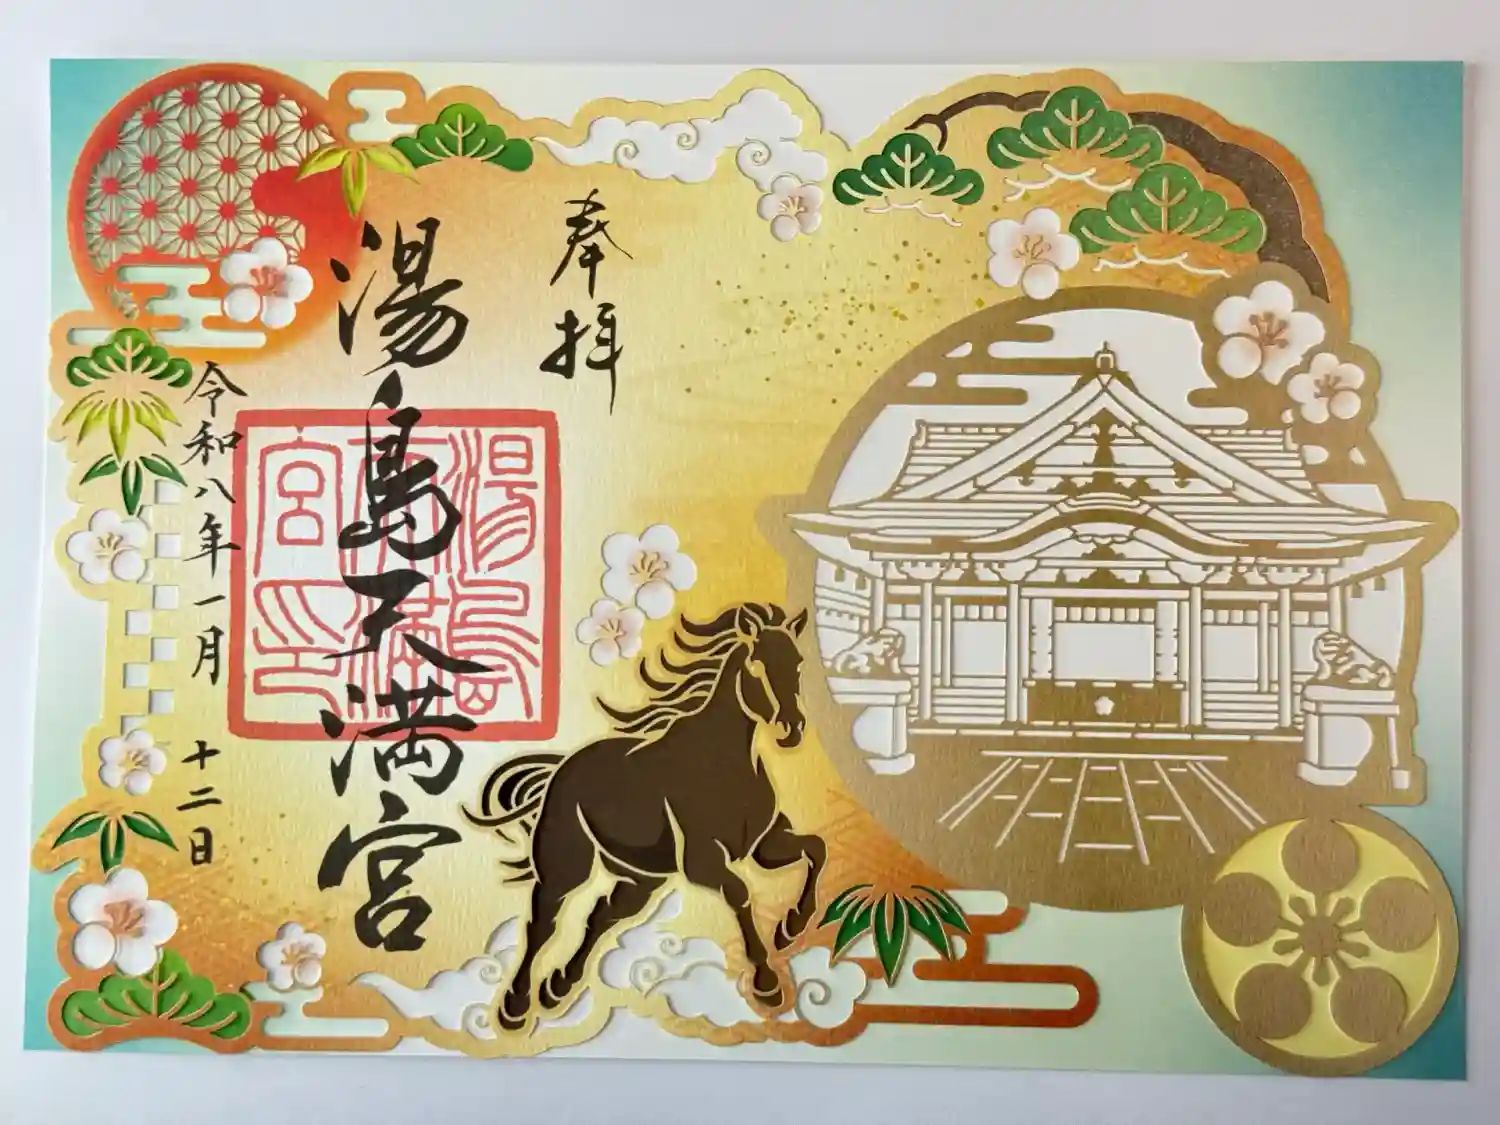 奉拝
湯島天満宮
湯島天満宮之印
令和八年一月十二日